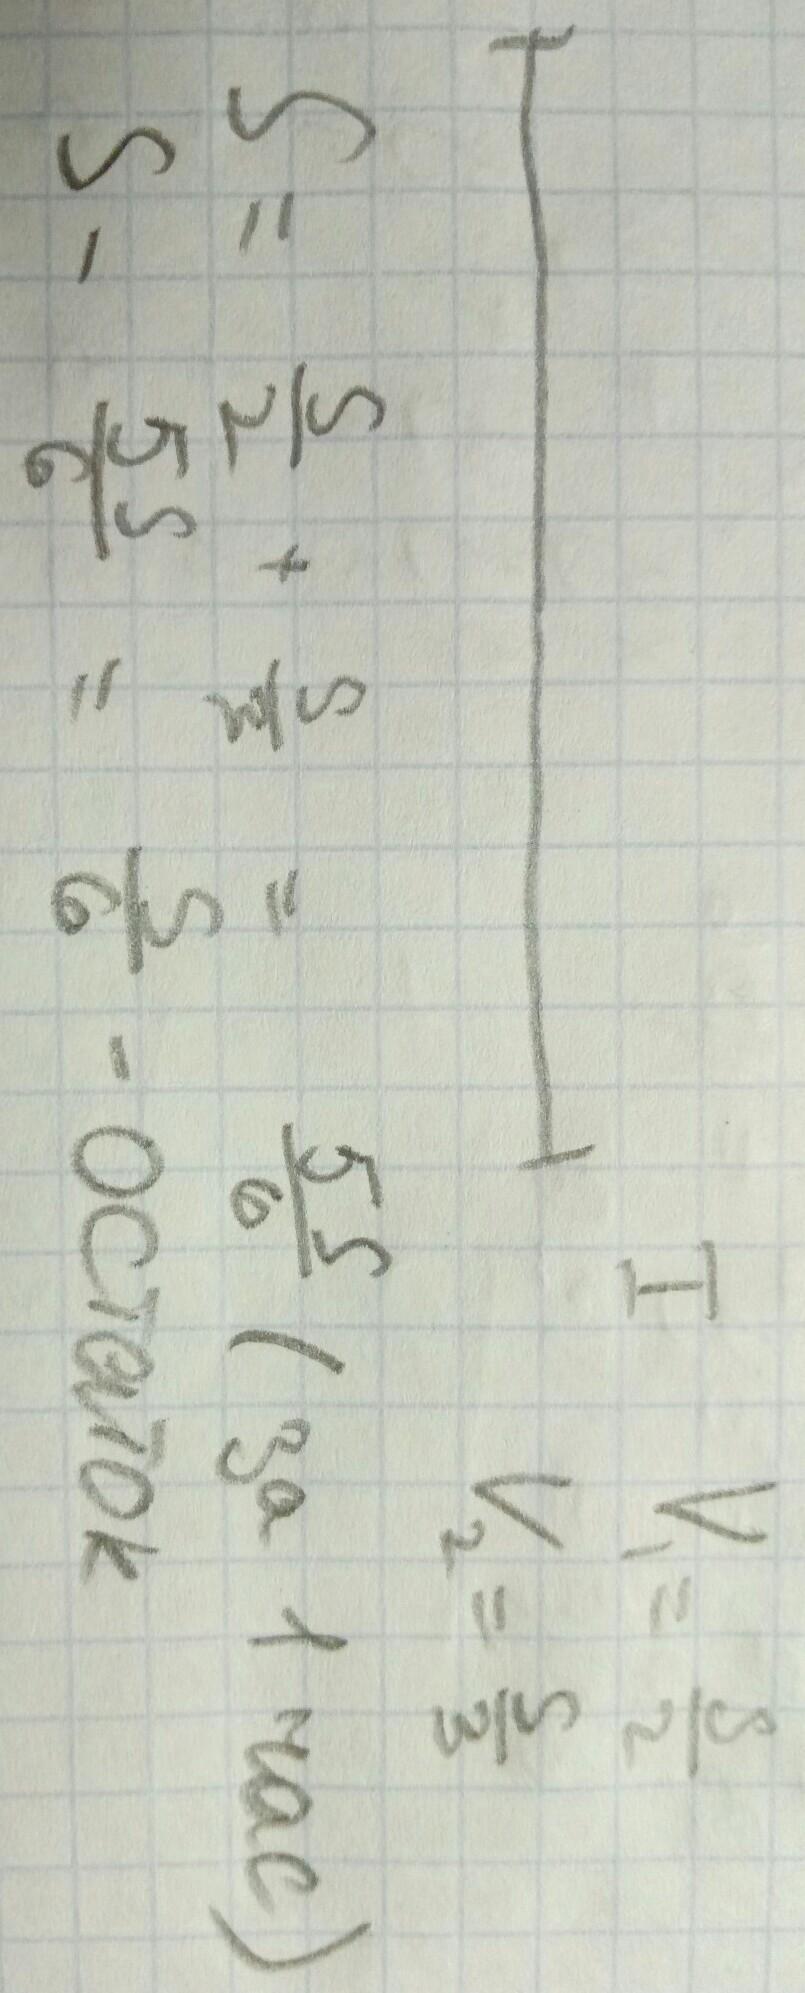 I V₁ = S/2
V₂ = S/3
S = S/2 + S/3 = 5S/6 (за 1 час)
S - 5S/6 = S/6 - остаток